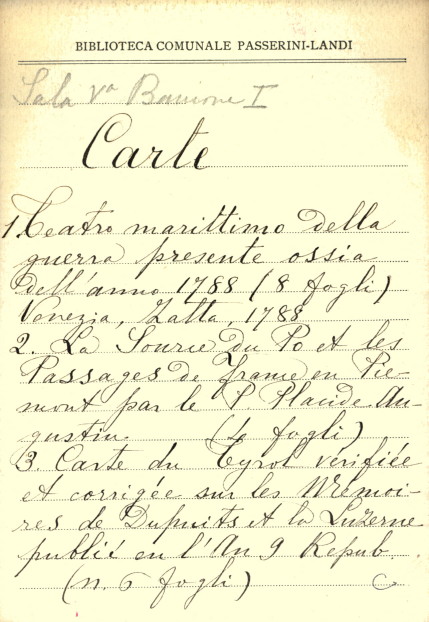 BIBLIOTECA COMUNALE PASSERINI-LANDI
Sala Va Bancone I
Carte
1. Teatro marittimo della
guerra presente ossia
dell'anno 1788 (8 fogli)
Venezia, Zatta, 1788
2. La Source du Po et les
Passages de France en Pie-
mont par le P. Placide Au-
gustin. (4 fogli)
3. Carte du Tyrol vérifiée
et corrigée sur les Mémoi-
res de Dupuits et la Luzerne
publié en l'An 9 Repub
(n. 6 fogli)